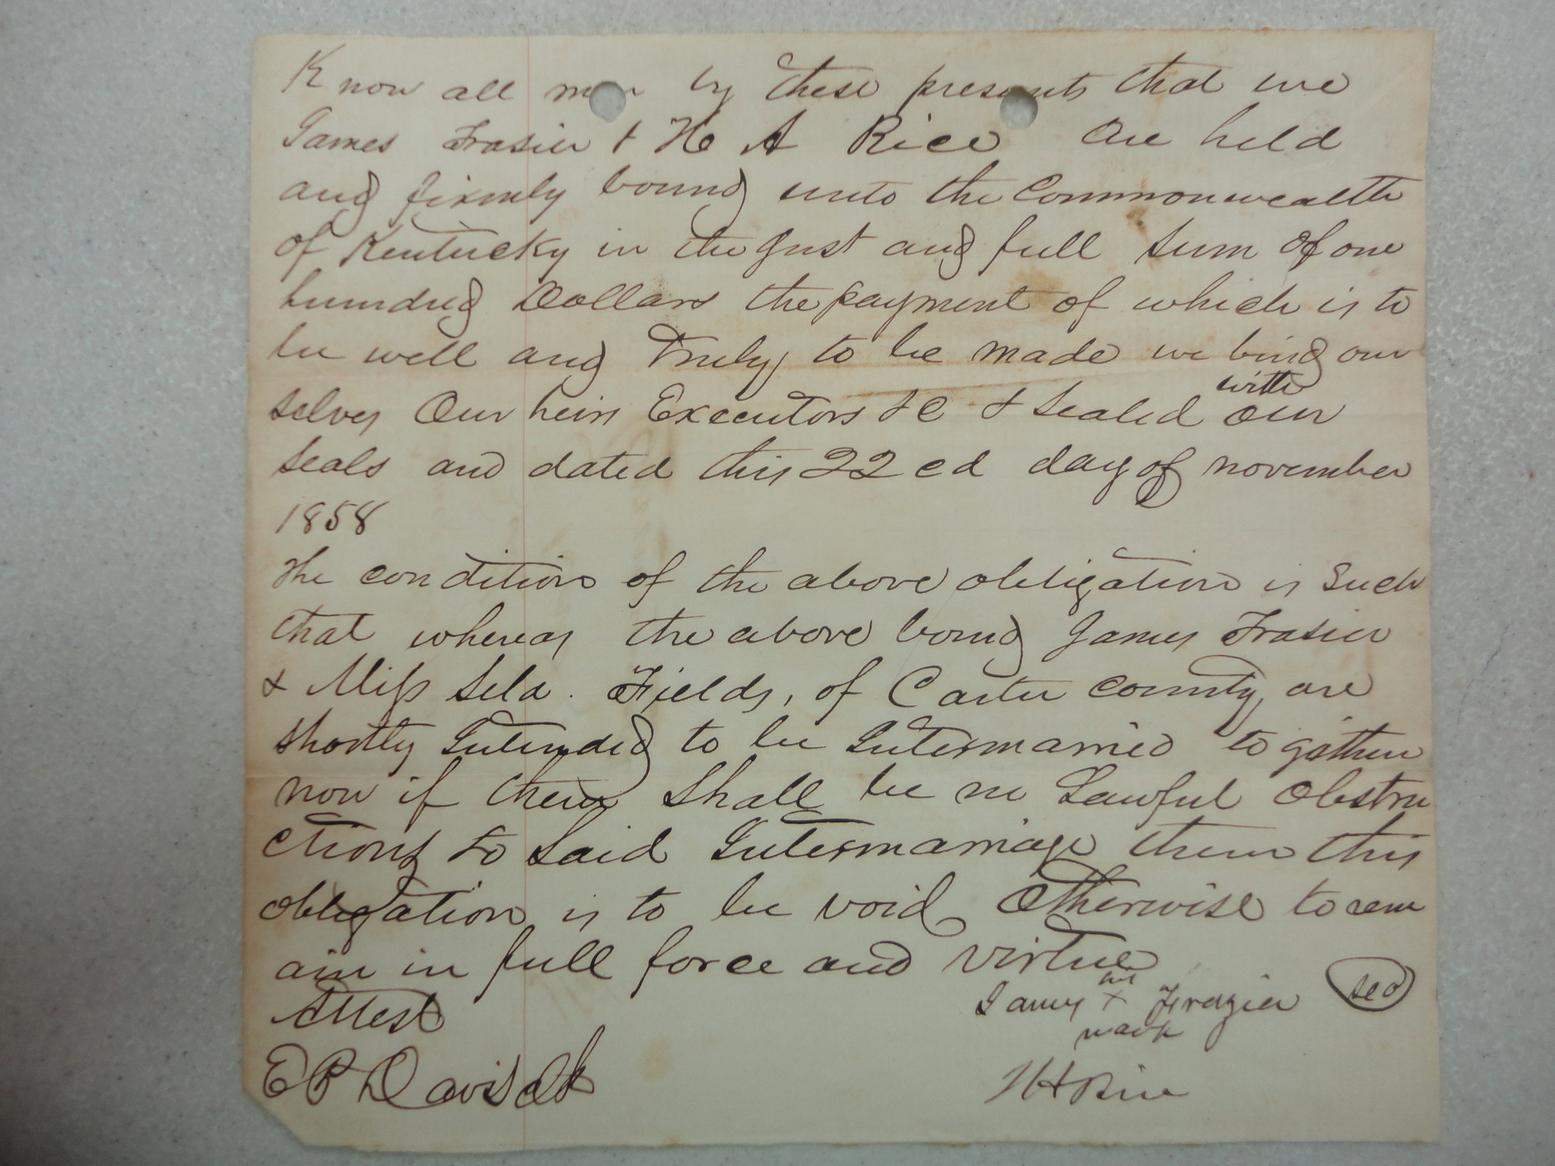 Know all men by these presents that we
James Frasier & H A Rice are held
and firmly bound unto the Commonwealth
of Kentucky in the Just and full sum of one
hundred Dollars the payment of which is to
be well and Truly to be made we bind our
selves Our heirs Executors &C & sealed with our
seals and dated this 22ed day of november
1858
The condition of the above obligation is Such
that whereas the above bound James Frasier
& Miss Sela. Fields, of Carter county, are
shortly Intended to be Intermarried to gather
now if there shall be no Lawful Obstru
ctions to said Intermarriage then this
obligation is to be void Otherwise to rem
ain in full force and virtue
Attest
James his x mark Frazier
E P Davis clk
H A Rice